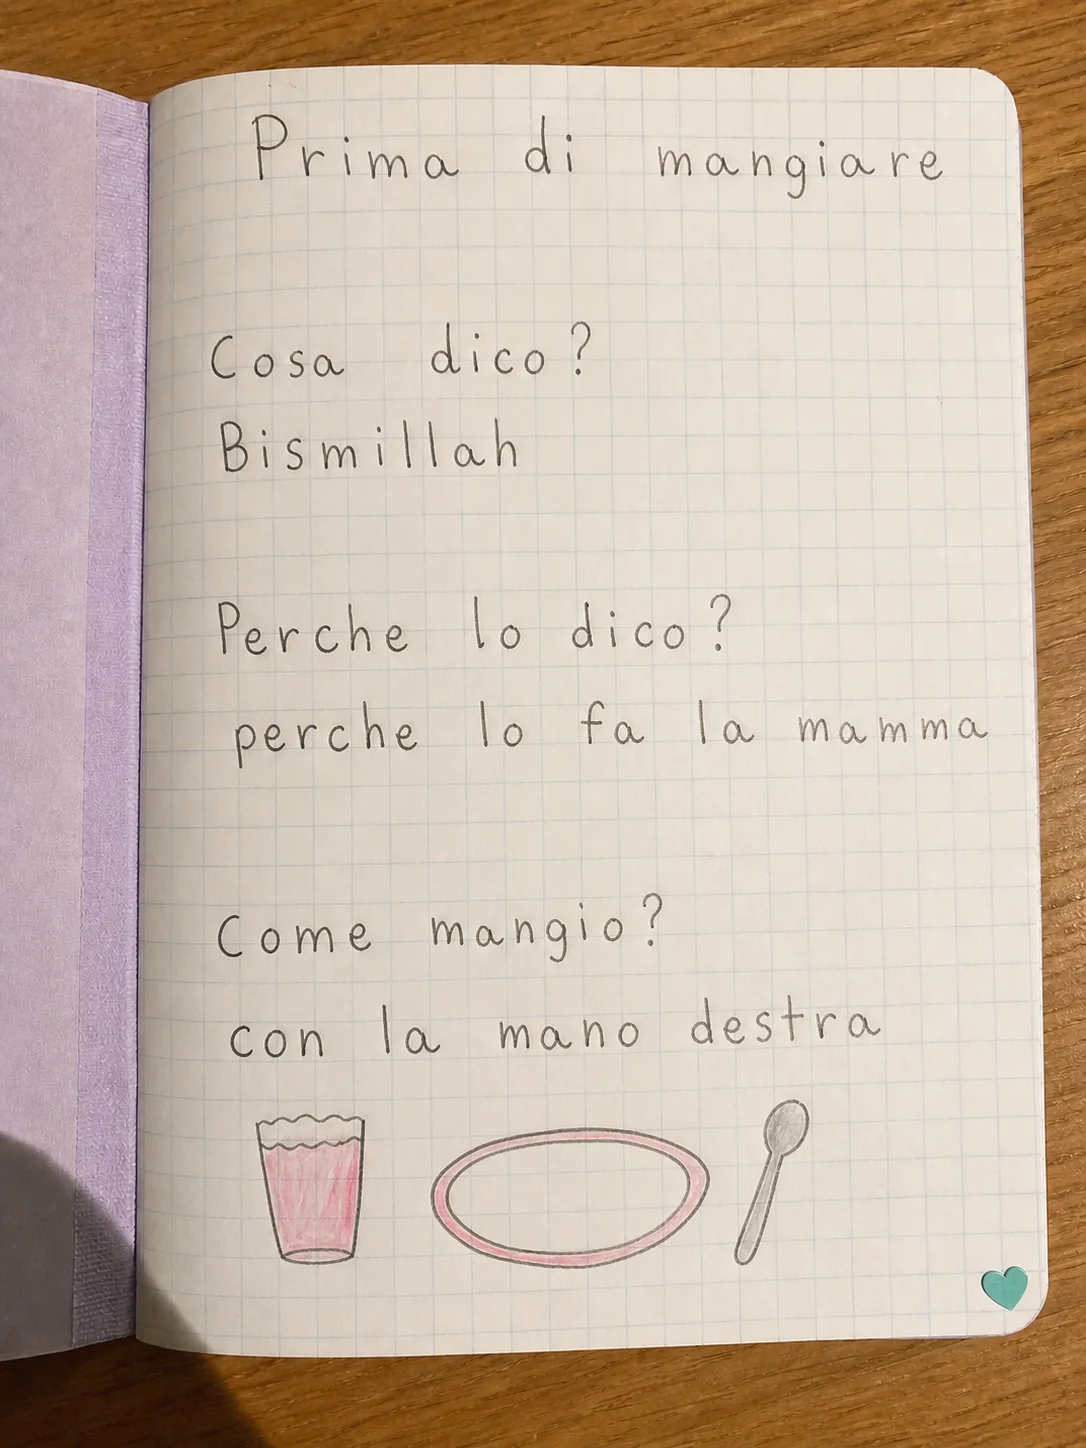 Prima di mangiare
Cosa dico?
Bismillah
Perche lo dico?
perche lo fa la mamma
Come mangio?
con la mano destra